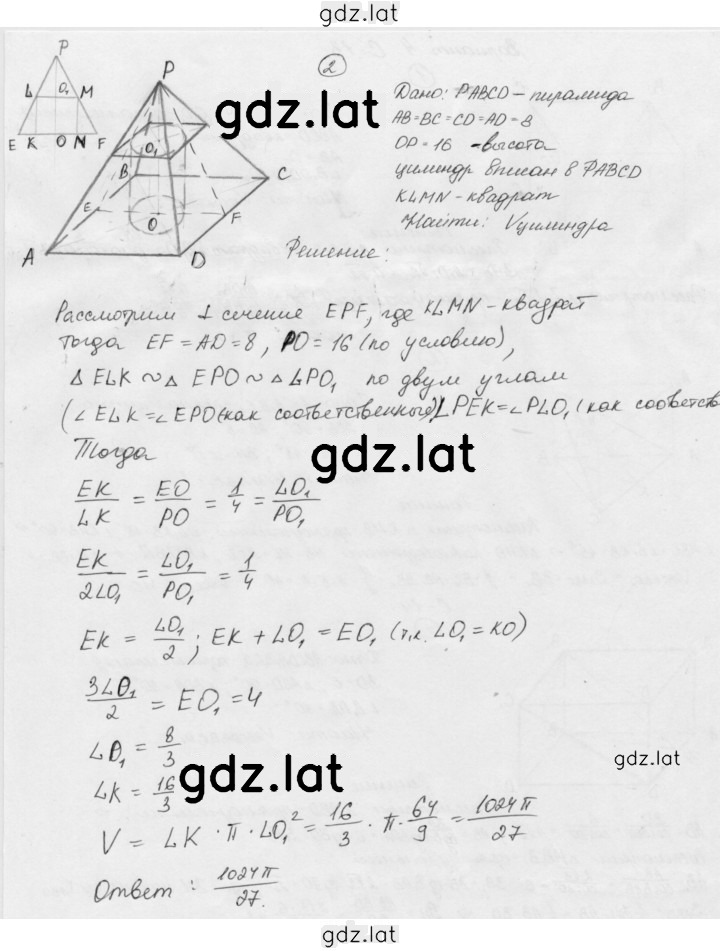 gdz.lat
2
P
L O₁ M
E K O N F
P
O₁
B
C
E
O
F
A
D
gdz.lat
Дано: PABCD – пирамида
AB=BC=CD=AD=8
OP=16 -высота
цилиндр вписан в PABCD
KLMN – квадрат
Найти: Vцилиндра
Решение:
Рассмотрим ⊥ сечение EPF, где KLMN – квадрат
тогда EF = AD = 8, PO = 16 (по условию),
△ ELK ~ △ EPO ~ △ LPO₁ по двум углам
(∠ELK = ∠EPO (как соответственные), ∠PEK = ∠PLO₁ (как соответств
Тогда
gdz.lat
EK/LK = EO/PO = 1/4 = LO₁/PO₁
EK/2LO₁ = LO₁/PO₁ = 1/4
EK = LO₁/2 ; EK + LO₁ = EO₁ (т.к. LO₁ = KO)
3LO₁/2 = EO₁ = 4
LO₁ = 8/3
gdz.lat
gdz.lat
LK = 16/3
V = LK · π · LO₁² = 16/3 · π · 64/9 = 1024π/27
Ответ : 1024π/27.
gdz.lat